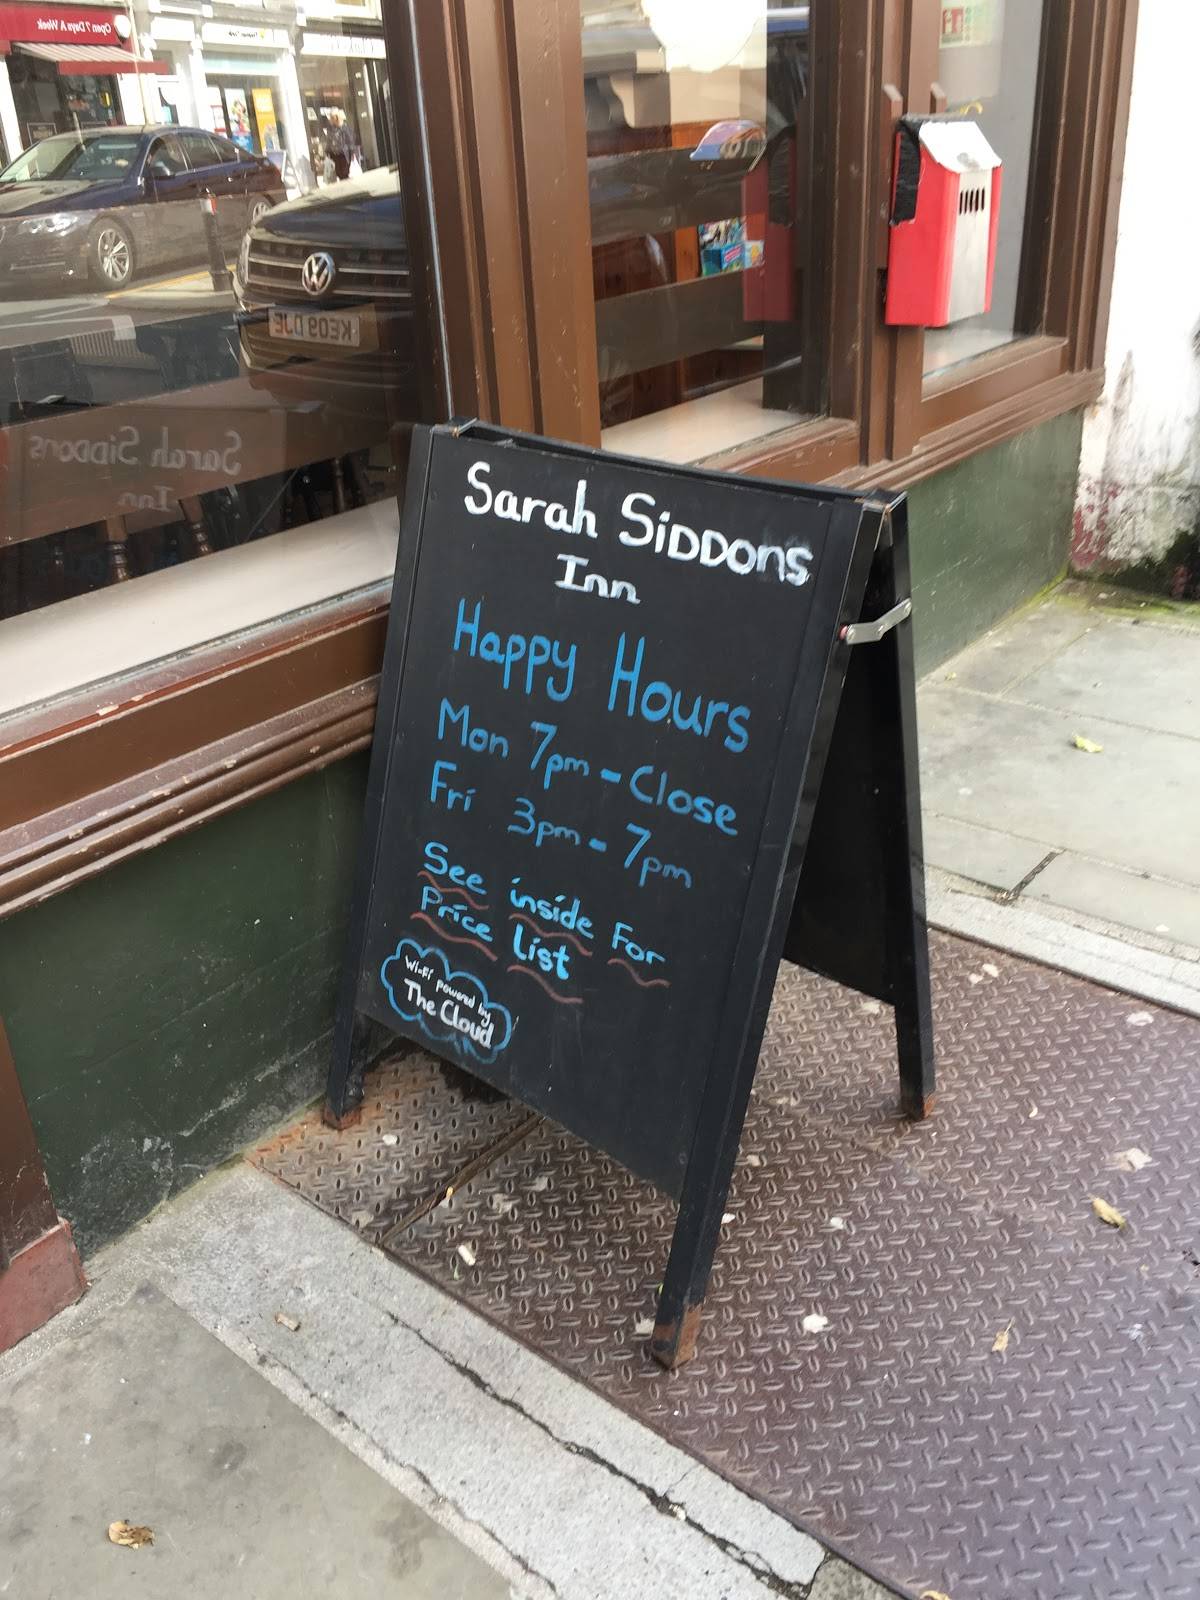 Open 7 Days A Week
KE09 OJE
Sarah Siddons
Inn
Sarah SiDDons
Inn
Happy Hours
Mon 7pm - Close
Fri 3pm - 7pm
See inside For
Price list
Wi-Fi powered by
The Cloud